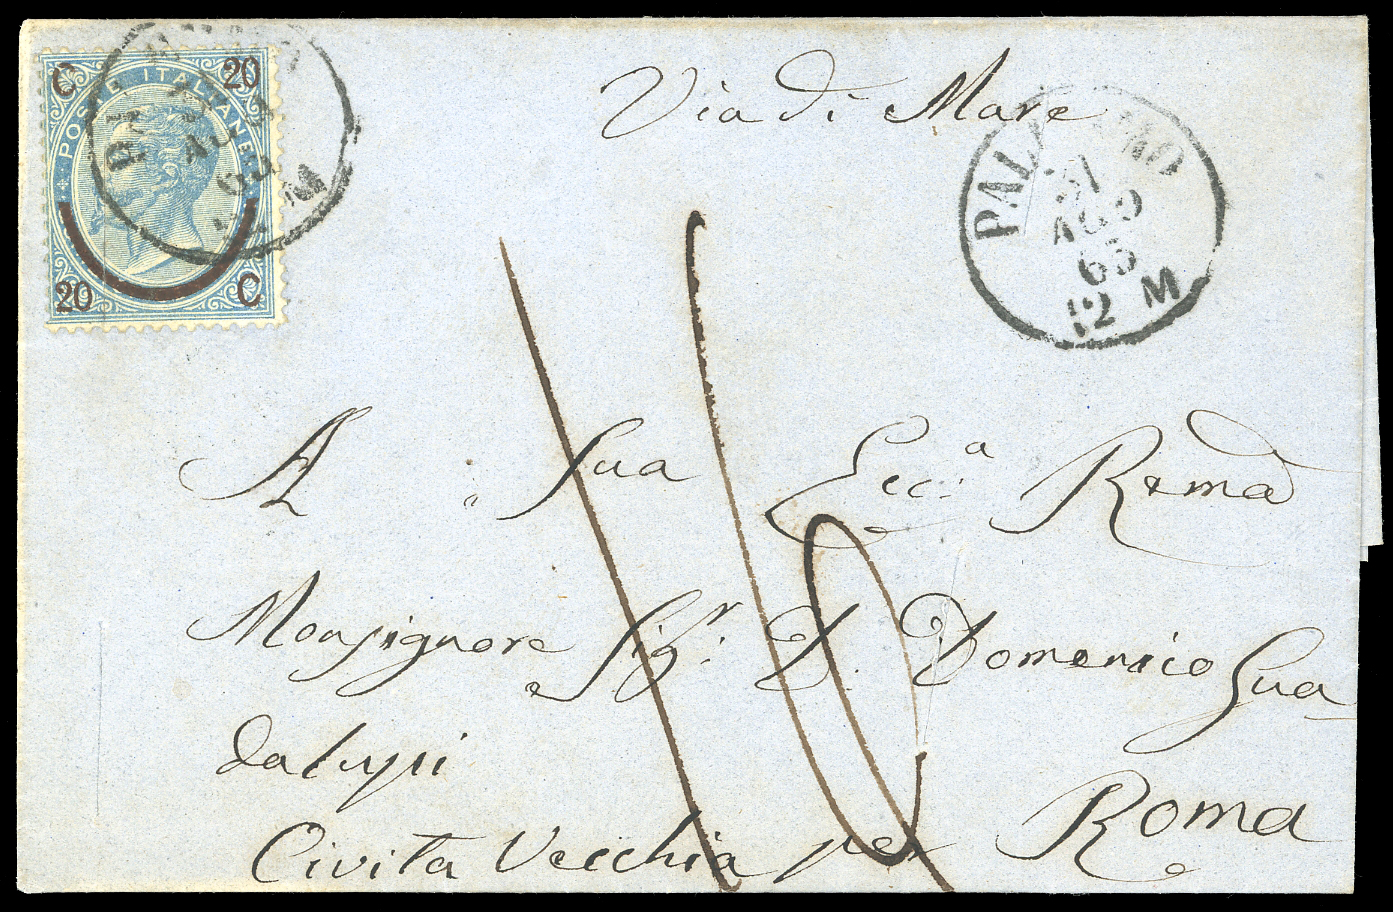 C 20
POSTE ITALIANE
20 C
Via di Mare
PALERMO
31
AGO
65
12 M
A Sua Ecc.a Rma
Monsignore Sigr. D. Domenico Gua
dalupi
Civita Vecchia per Roma